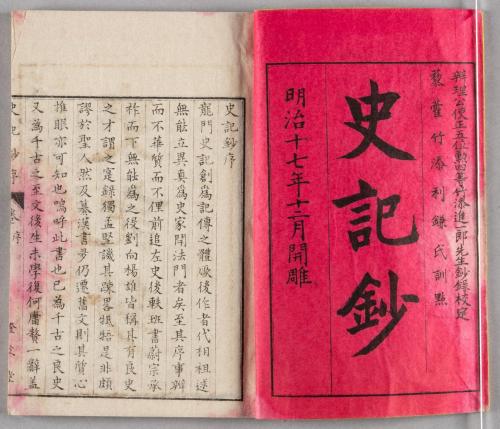 辨理公使正五位勲四等竹添進一郎先生鈔録校定
竹添利鎌氏訓點
史記鈔
明治十七年十二月開雕
史記鈔序
龍門史記創為記傳之體歇後作者代相祖述
無能立異真為史家開法門者矣至其序事辨
而不華質而不俚前追左史後軼班書蔚宗承
祚而下無能為之後劉向楊雄皆稱其有良史
之才謂之寔錄獨孟堅譏其疎畧牴牾是非頗
謬於聖人然及纂漢書乃仍遷舊文則其賞心
推眼亦可知也嗚呼此書也已為千古之良史
又為千古之至文後生未學復何庸贅一辭蓋